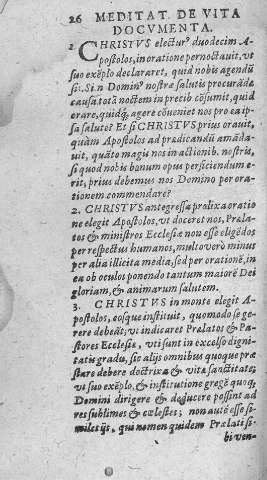 26 MEDITAT. DE VITA
DOCVMENTA.
1 CHRISTVS electurꝰ duodecim A-
postolos, in oratione pernoctauit, vt
suo exẽplo declararet, quid nobis agendũ
sit. Si n. Dominꝰ nostræ salutis procurãdæ
causa totã noctem in precib. cõsumit, quid
orare, quidq́; agere cõueniet nos pro ea ip-
sa salute? Et si CHRISTVS prius orauit,
quàm Apostolos ad prædicandũ amãda-
uit, quãto magis nos in actionib. nostris,
si quod nobis bonum opus perficiendum e-
rit, prius debemus nos Domino per ora-
tionem commendare?
2. CHRISTVS antegressa prolixa oratio
ne elegit Apostolos, vt doceret nos, Præla-
tos & ministros Ecclesiæ non esse eligẽdos
per respectus humanos, multo verò minus
per alia illicita media, sed per orationẽ, in
ea ob oculos ponendo tantum maiorẽ Dei
gloriam, & animarum salutem.
3. CHRISTVS in monte elegit A-
postolos, eosque instituit, quomodo se ge-
rere debeãt, vt indicaret Prælatos & Pa-
stores Ecclesiæ, vti sunt in excelso digni-
tatis gradu, sic alijs omnibus quoque præ
stare debere doctrina & vitæ sanctitate;
vt suo exẽplo, & institutione gregẽ quoq́;
Domini dirigere & deducere possint ad
res sublimes & cœlestes; non autẽ esse si-
miles ijs, qui nomen quidem Prælati si-
bi ven-